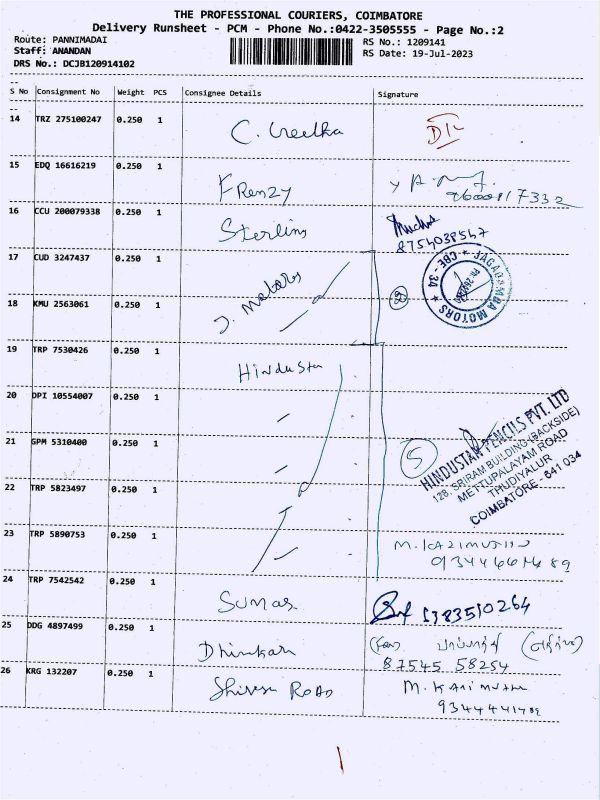 THE PROFESSIONAL COURIERS, COIMBATORE
Delivery Runsheet - PCM - Phone No.:0422-3505555 - Page No.:2
Route: PANNIMADAI
Staff: ANANDAN
DRS No.: DCJB120914102
RS No.: 1209141
RS Date: 19-Jul-2023
S No Consignment No Weight PCS Consignee Details Signature
14 TRZ 275100247 0.250 1
15 EDQ 16616219 0.250 1 Frenzy
16 CCU 200079338 0.250 1 Sterling
8754038547
17 CUD 3247437 0.250 1 J. Motors
JAGADAMBA MOTORS
CBE - 34
18 KMU 2563061 0.250 1
19 TRP 7530426 0.250 1 Hindustan
20 DPI 10554007 0.250 1
21 GPM 5310400 0.250 1 5
HINDUSTAN PENCILS PVT. LTD
128, SRIRAM BUILDING (BACKSIDE)
METTUPALAYAM ROAD
THUDIYALUR
COIMBATORE - 641 034
22 TRP 5823497 0.250 1
23 TRP 5890753 0.250 1
24 TRP 7542542 0.250 1
25 DDG 4897499 0.250 1
87545 58254
26 KRG 132207 0.250 1